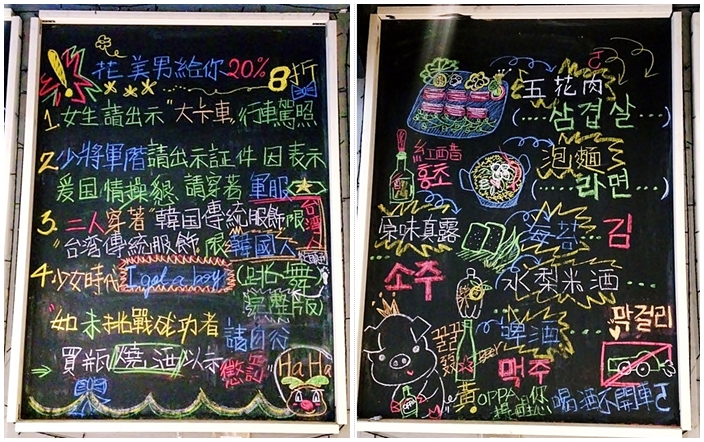 花美男給你20% 8折
1. 女生請出示"大卡車"行車駕照
2. 少將軍曆請出示証件因表示
愛国情操懇請穿著軍服
3. 二人穿著"韓国傳統服飾限台湾人
"台湾傳統服飾"限韓國人
4. 少女時代 I got a boy (跳舞)
完整版
如未挑戰成功者請自
買瓶燒酒以示懲罰
HaHa
五花肉
(...삼겹살...)
紅醋
홍초
泡麵
(...라면...)
原味真露
海苔 김
소주
水梨米酒
막걸리
꿀꿀
啤酒
Beer
맥주
黃OPPA提醒您喝酒不開車